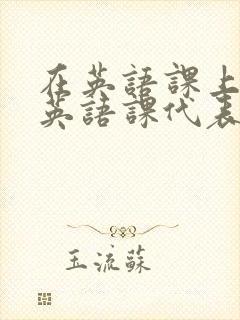 在英語課上
英語課代表
玉流蘇